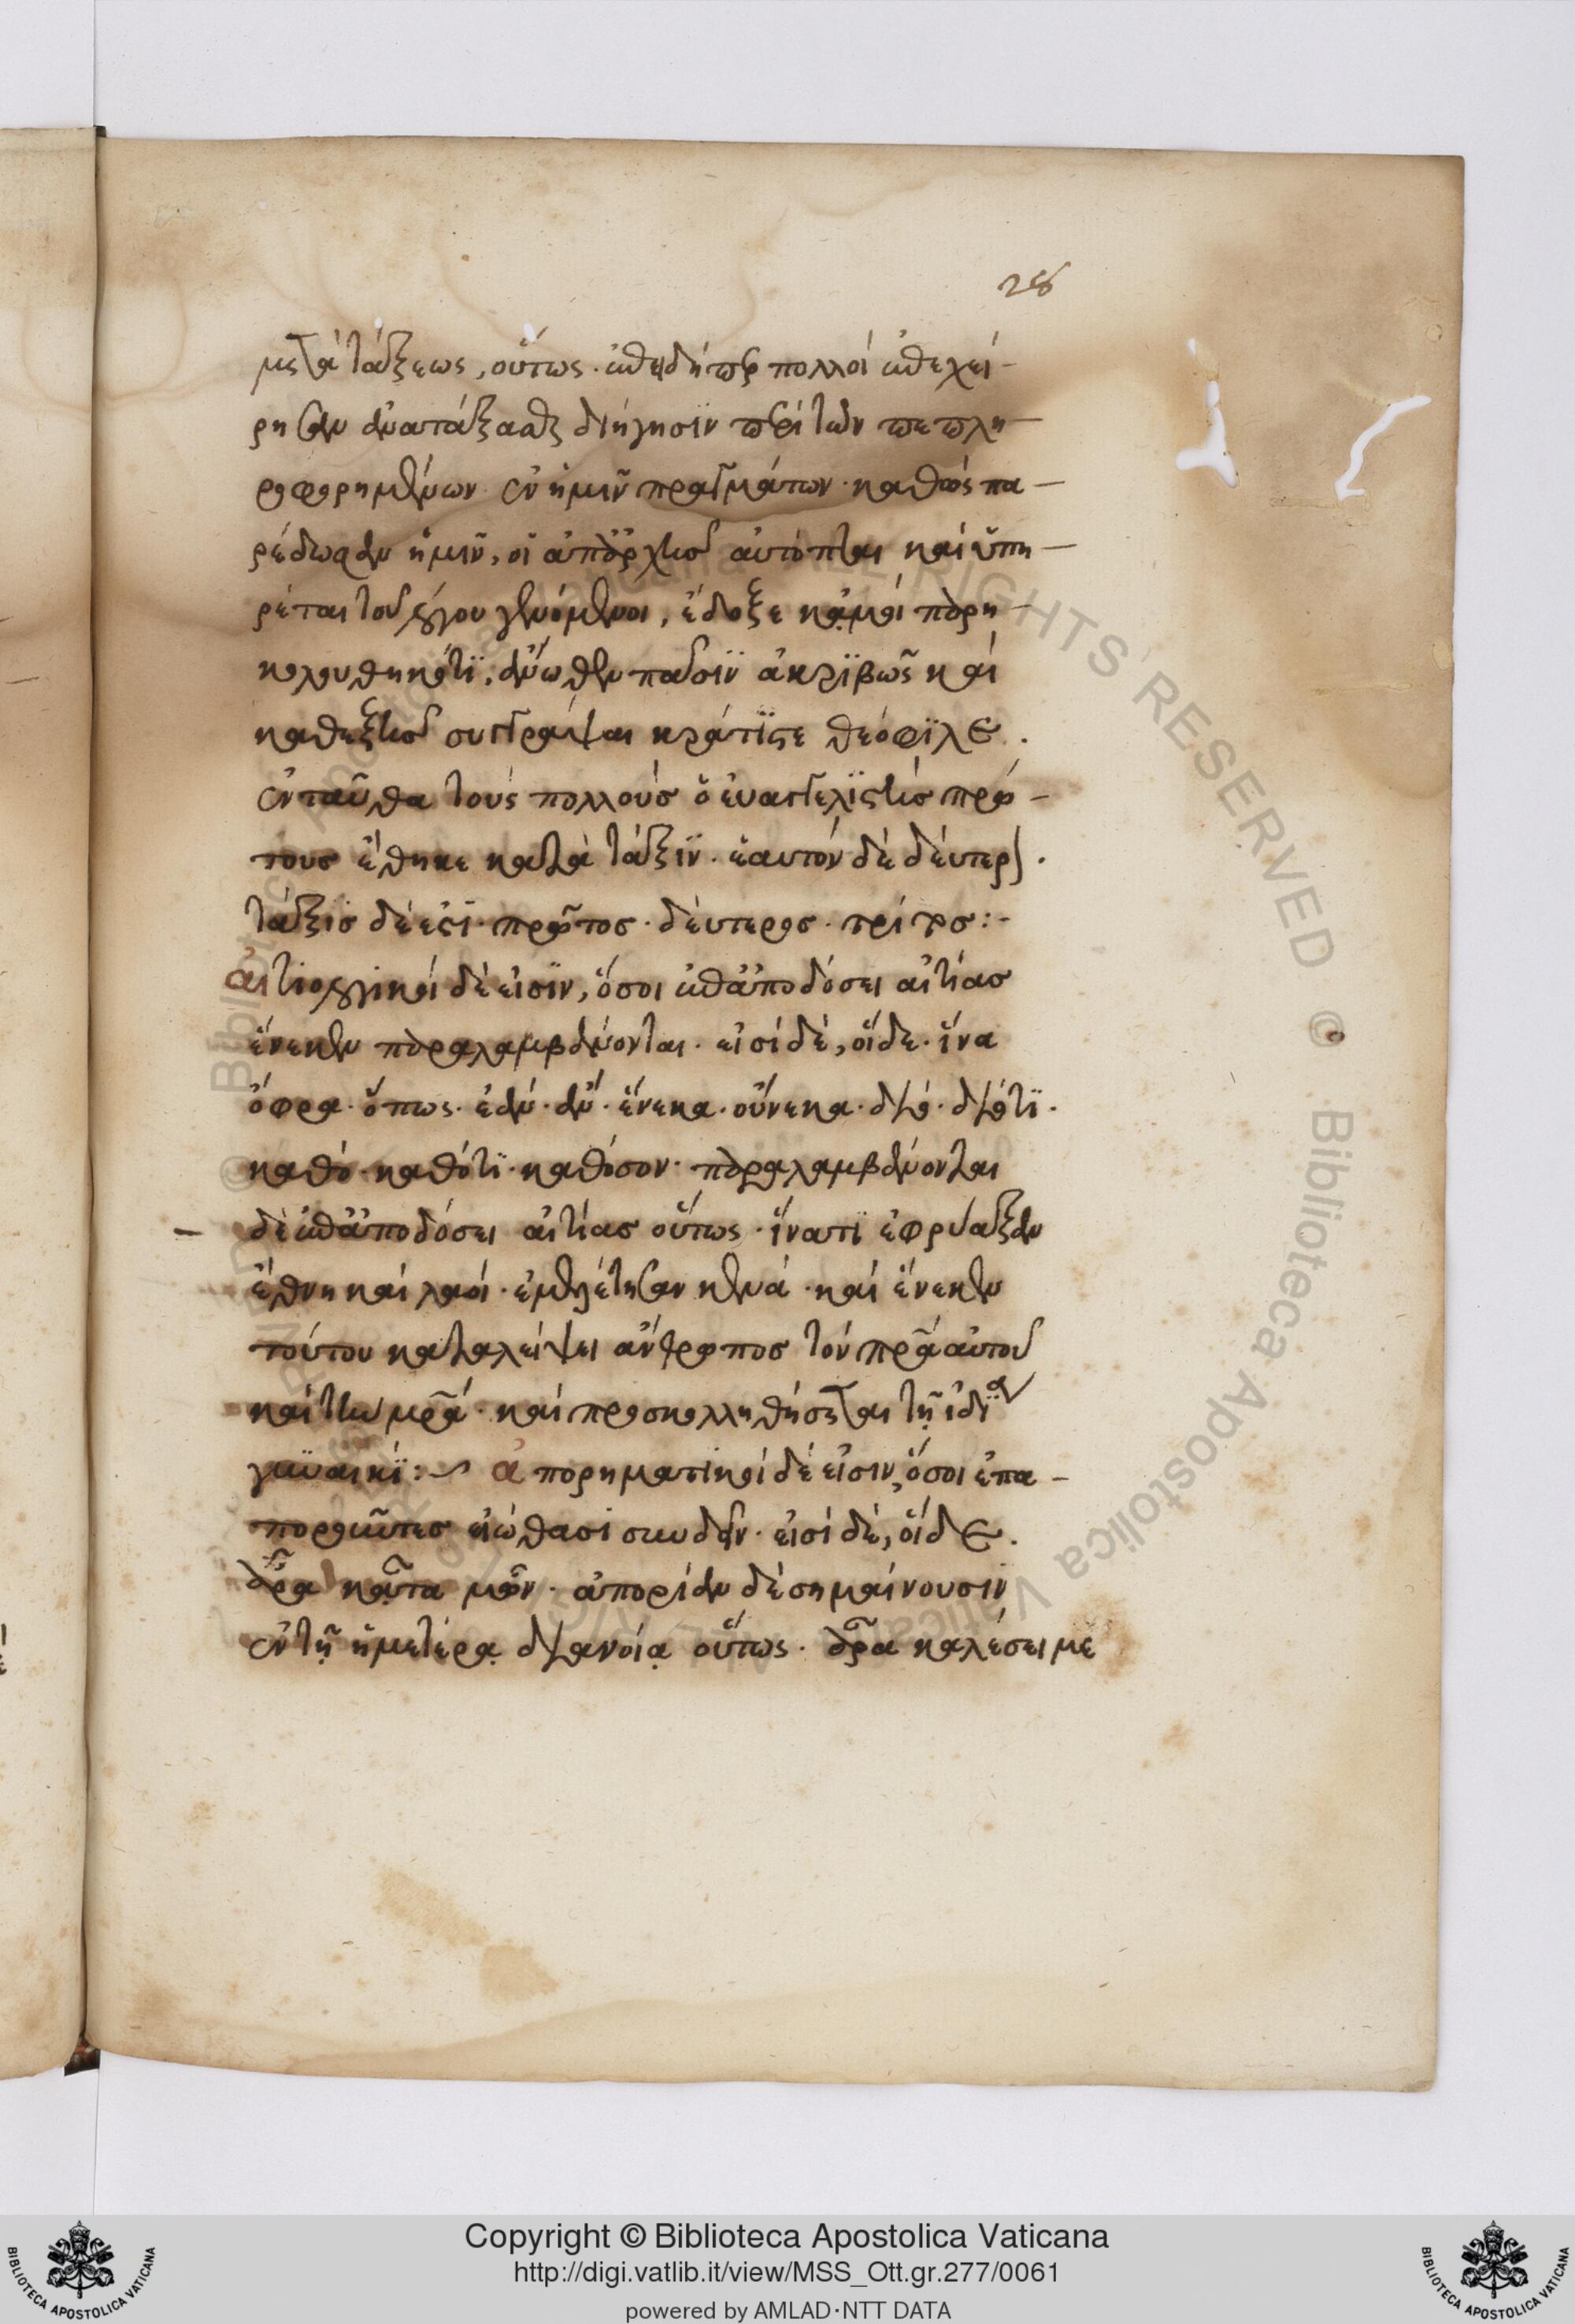 28
μετὰ τάξεως, οὕτως· ἐπειδήπερ πολλοὶ ἐπεχεί-
ρησαν ἀνατάξασθαι διήγησϊν περὶ τῶν πεπλη-
ροφορημένων ἐν ἡμῖν πραγμάτων· καθὼς πα-
ρέδωσαν ἡμῖν, οἱ ἀπαρχῆς αὐτόπται καὶ ὑπη-
ρέται τοῦ λόγου γενόμενοι, ἔδοξε κᾀμοὶ παρη-
κολουθηκότϊ, ἄνωθεν πᾶσϊν ἀκρϊβῶς καὶ
καθεξῆς συγγράψαι κράτϊστε θεόφϊλε.
ἐνταῦθα τοὺς πολλοὺς ὁ εὐαγγελϊστὴς πρώ-
τους ἔθηκε κατὰ τάξϊν. ἑαυτὸν δὲ δεύτερον.
τάξϊς δέ ἐστϊ· πρῶτος· δεύτερος· τρίτος:-
αἰτιολογικοὶ δέ εἰσϊν, ὅσοι ἐπἀποδόσει αἰτίας
ἕνεκεν παραλαμβάνονται. εἰσὶ δὲ, οἵδε· ἵνα
ὄφρα· ὅπως· ἐάν· ἄν· ἕνεκα· οὕνεκα· διό· διότϊ·
καθό· καθότϊ· καθόσον· παραλαμβάνονται
δὲ ἐπἀποδόσει αἰτίας οὕτως· ἵνατϊ ἐφρύαξαν
ἔθνη καὶ λαοὶ· ἐμελέτησαν κενά· καὶ ἕνεκεν
τούτου καταλείψει ἄνθρωπος τὸν πρα αὐτοῦ
καὶ τὴν μρα· καὶ προσκολληθήσεται τῇ ἰδϊα
γυναικϊ:~ ἀπορηματϊκοὶ δέ εἰσιν, ὅσοι ἐπα-
ποροῦντες εἰώθασι συνδεῖν· εἰσὶ δὲ, οἵδε.
ἆρα κᾆτα μῶν· ἀπορίαν δὲ σημαίνουσιν
ἐν τῇ ἡμετέρᾳ διανοίᾳ οὕτως· ἆρα καλέσει με
Copyright © Biblioteca Apostolica Vaticana
http://digi.vatlib.it/view/MSS_Ott.gr.277/0061
powered by AMLAD·NTT DATA